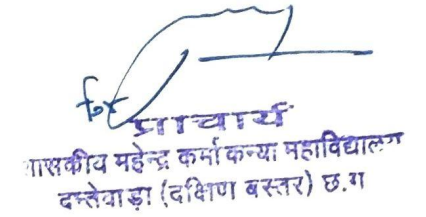 for
प्राचार्य
शासकीय महेन्द्र कर्मा कन्या महाविद्यालय
दन्तेवाड़ा (दक्षिण बस्तर) छ.ग